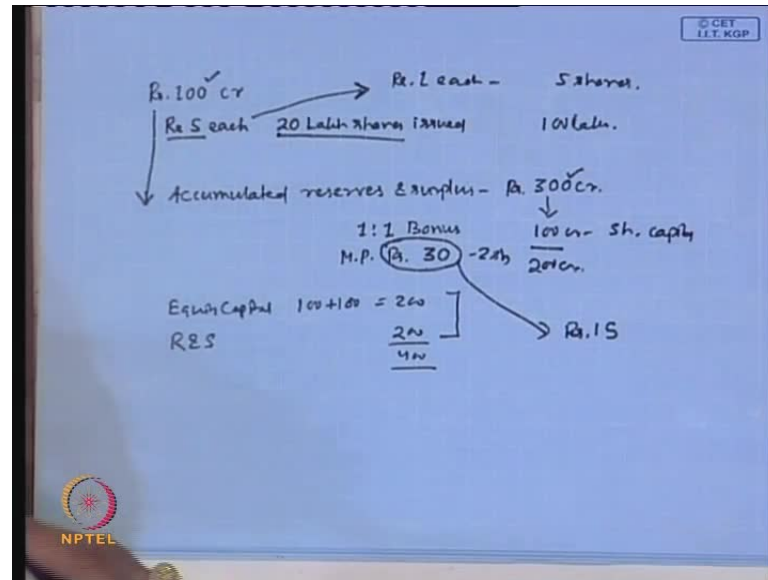 © CET
I.I.T. KGP
Rs. 100 cr
Re. 1 each - 5 shares.
Rs 5 each 20 Lakh shares issued 100 lakh.
Accumulated reserves & surplus - Rs. 300 cr.
1:1 Bonus 100 cr - Sh. capital
M.P. Rs. 30 - 2 sh 200 cr.
Equity Capital 100+100 = 200
R&S 200 Rs. 15
400
NPTEL